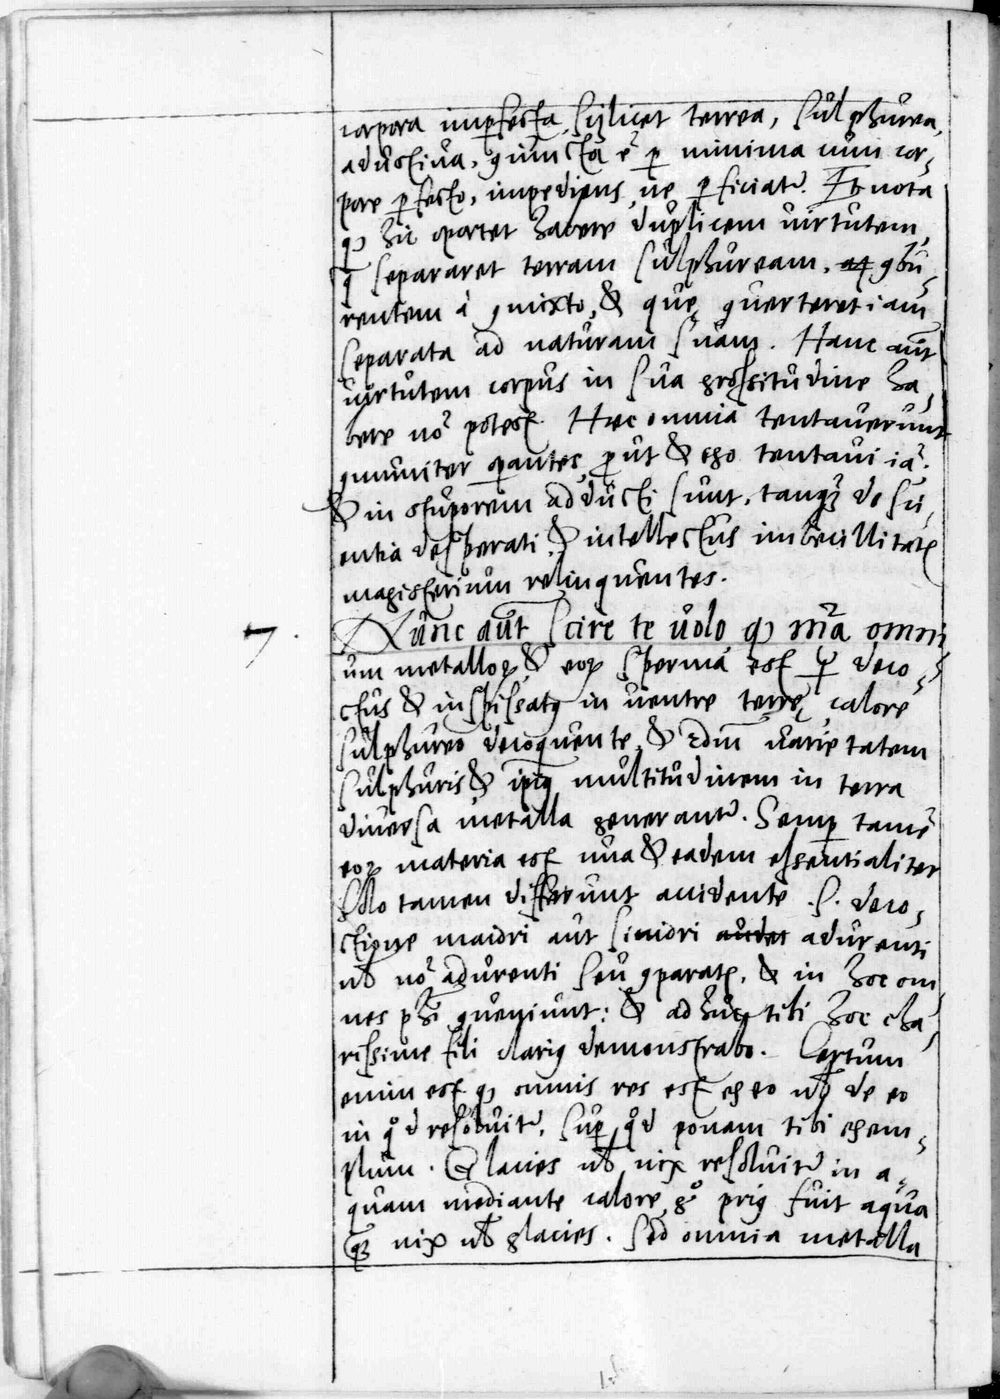 corpora imp̱fecta, scilicet terrea, sulphurea,
adustiua, ꝯiuncta ē p̱ minima cum cor-
pore p̱fecto, impediens, ne p̱ficiatr̃. Et nota
ꝙ hic oportet habere duplicem uirtutem,
q̃ separaret terram sulphuream, ꝯbu-
rentem à ꝯmixto, & quę ꝯuerteret iam
separata ad naturam suam. Hanc aũt
uirtutem corpus in sua grossitudine ha-
bere nõ potest. Hæc omnia tentauerunt
ꝯmuniter oꝑantes, ꝓut & ego tentaui iã.
& in stuporem adducti sunt, tanqꝫ de sci-
entia desperati & intellectus imbecillitate
magisterium relinquentes.
7. Nunc aũt scire te uolo ꝙ m̃a omni
um metalloꝝ & eoꝝ sperma est ☿ deco-
ctus & inspissatꝰ in uentre terrę, calore
sulphureo decoquente, & ẜcdm̃ uarietatem
sulphuris & ip̃iꝰ multitudinem in terra
diuersa metalla generantr̃. Semꝑ tamẽ
eoꝝ materia est una & eadem essentialiter
solo tamen differunt accidente .s. deco-
ctione maiori aut minori adurenti
uł nõ adurenti seu ꝯparate, & in hoc om-
nes ph̃i ꝯueniunt: & adhuc tibi hoc cha-
rissime fili clariꝰ demonstrabo. Certum
enim est ꝙ omnis res est ex eo uł de eo
in qͦd resoluitr̃, suꝑ qͦd ponam tibi exem-
plum. Glacies uł nix resoluitr̃ in a-
quam mediante calore, gͦ priꝰ fuit aqua
qꝫ nix uł glacies. Sed omnia metalla